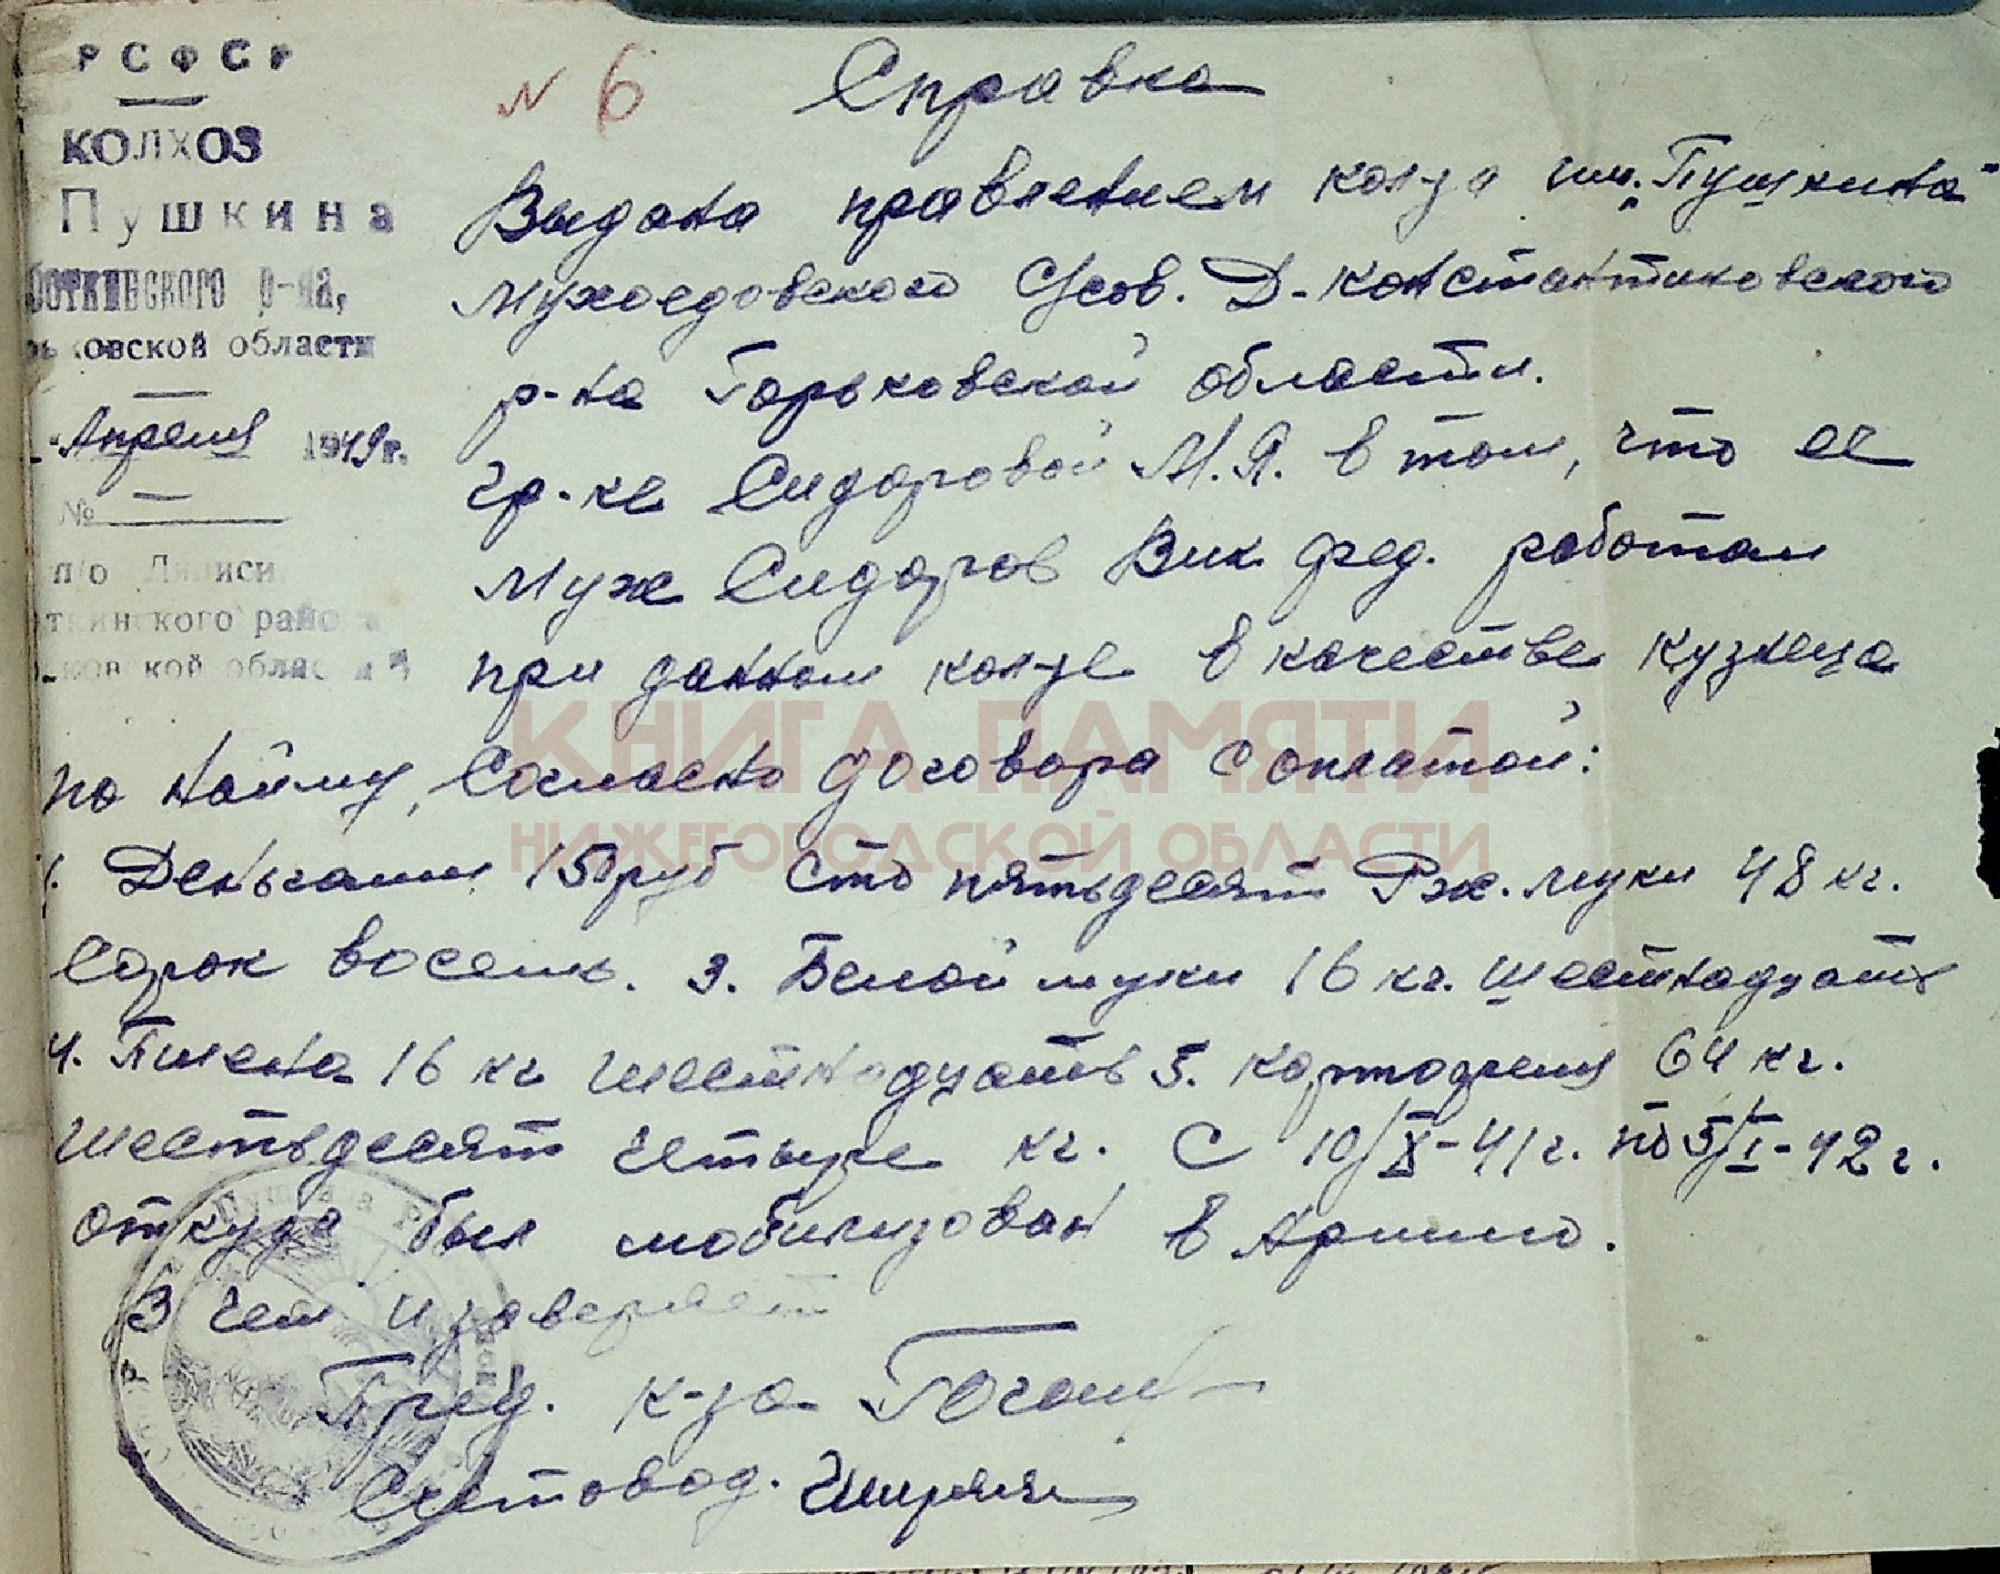 РСФСР
КОЛХОЗ
Пушкина
боткинского р-на,
ьковской области
Апреля 1949г.
№ —
п/о Ляписи
ткинского района
ковской области
N 6
Справка
Выдана правлением колхоза им. „Пушкина"
Мухоедовского С/сов. Д-Константиновского
р-на Горьковской области.
гр-ке Сидоровой М.Я. в том, что ее
муж Сидоров Вик. Фед. работал
при данном колхозе в качестве кузнеца
по найму, Согласно договора с оплатой:
1. Деньгами 150 руб сто пятьдесят Рж. муки 48 кг.
Сорок восемь. 3. Белой муки 16 кг. шестнадцать
4. Пшена 16 кг шестнадцать 5. картофеля 64 кг.
шестьдесят четыре кг. С 10/X-41г. по 5/I-42г.
откуда был мобилизован в Армию.
В чем и заверяет
Пред. к-за
Счетовод.
КНИГА ПАМЯТИ
НИЖЕГОРОДСКОЙ ОБЛАСТИ